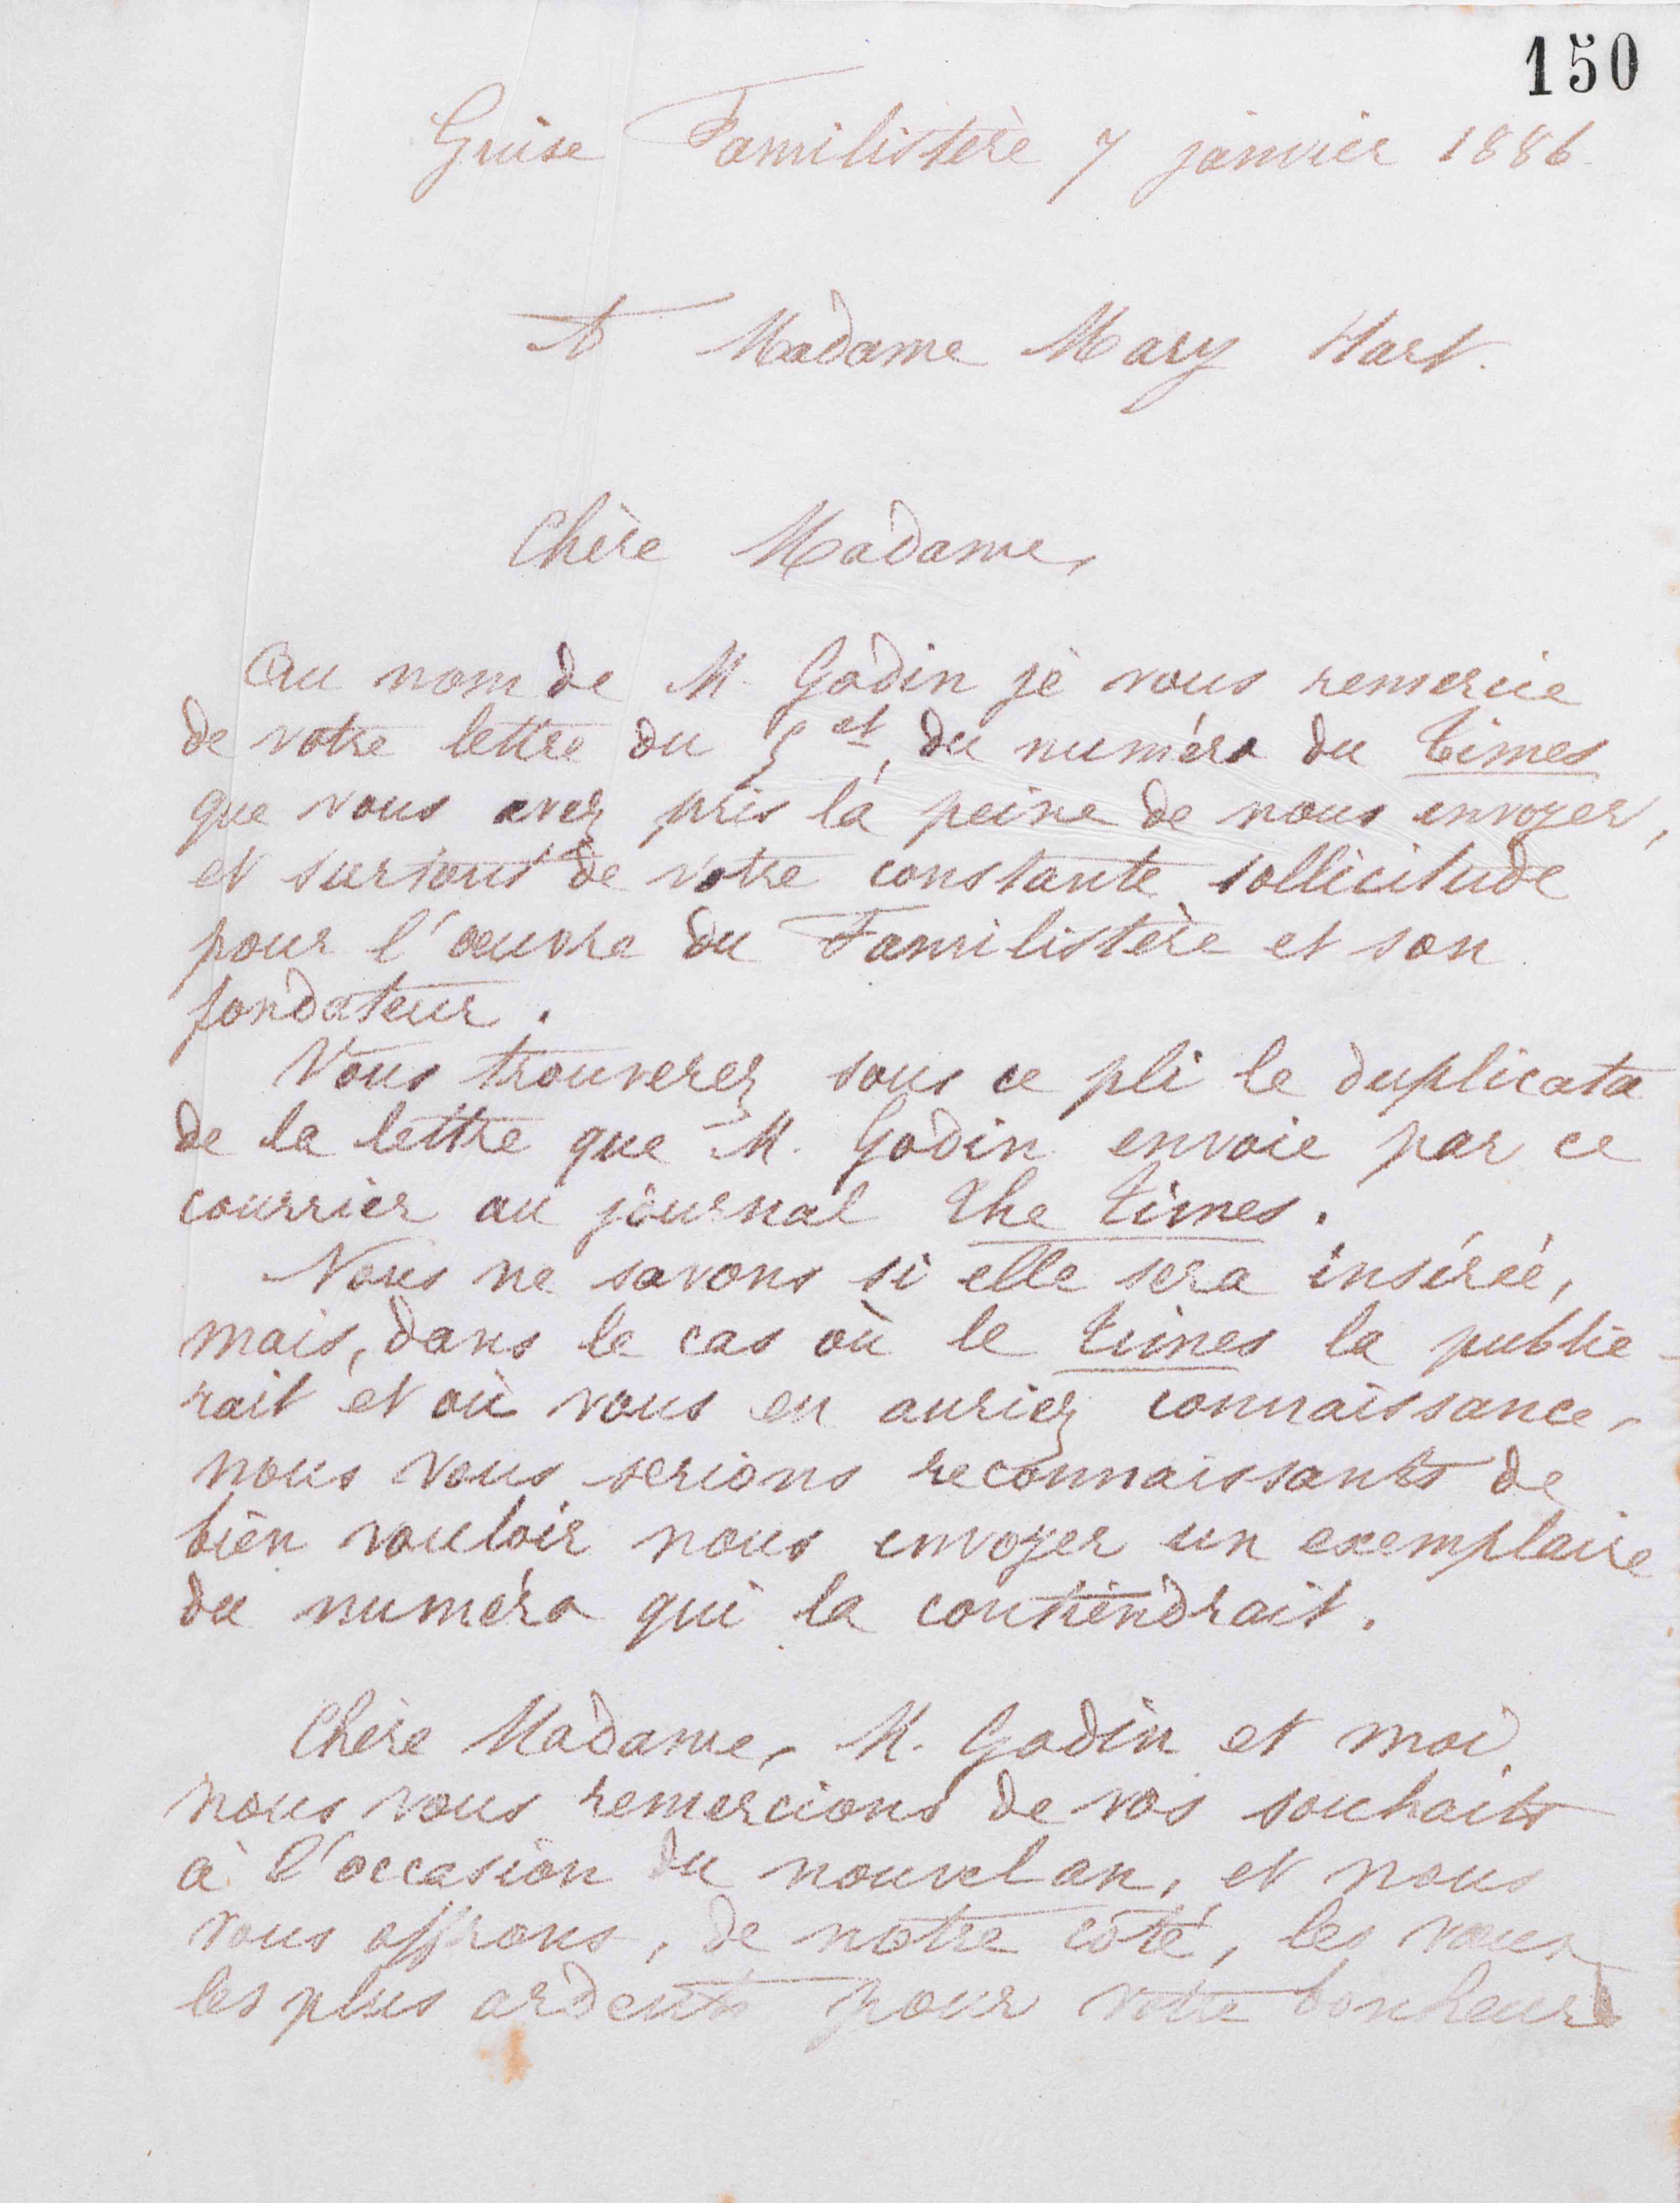 150
Guise Familistère 7 janvier 1886
A Madame Mary Hart.
Chère Madame,
Au nom de M. Godin je vous remercie
de votre lettre du 5 et, du numéro du Times
que vous avez pris la peine de nous envoyer,
et surtout de votre constante sollicitude
pour l'œuvre du Familistère et son
fondateur.
Vous trouverez sous ce pli le duplicata
de la lettre que M. Godin envoie par ce
courrier au journal The Times.
Nous ne savons si elle sera insérée,
mais, dans le cas où le Times la publie-
rait et où vous en auriez connaissance,
nous vous serions reconnaissants de
bien vouloir nous envoyer un exemplaire
du numéro qui la contiendrait.
Chère Madame, M. Godin et moi
nous vous remercions de vos souhaits
à l'occasion du nouvel an, et nous
vous offrons, de notre côté, les vœux
les plus ardents pour votre bonheur